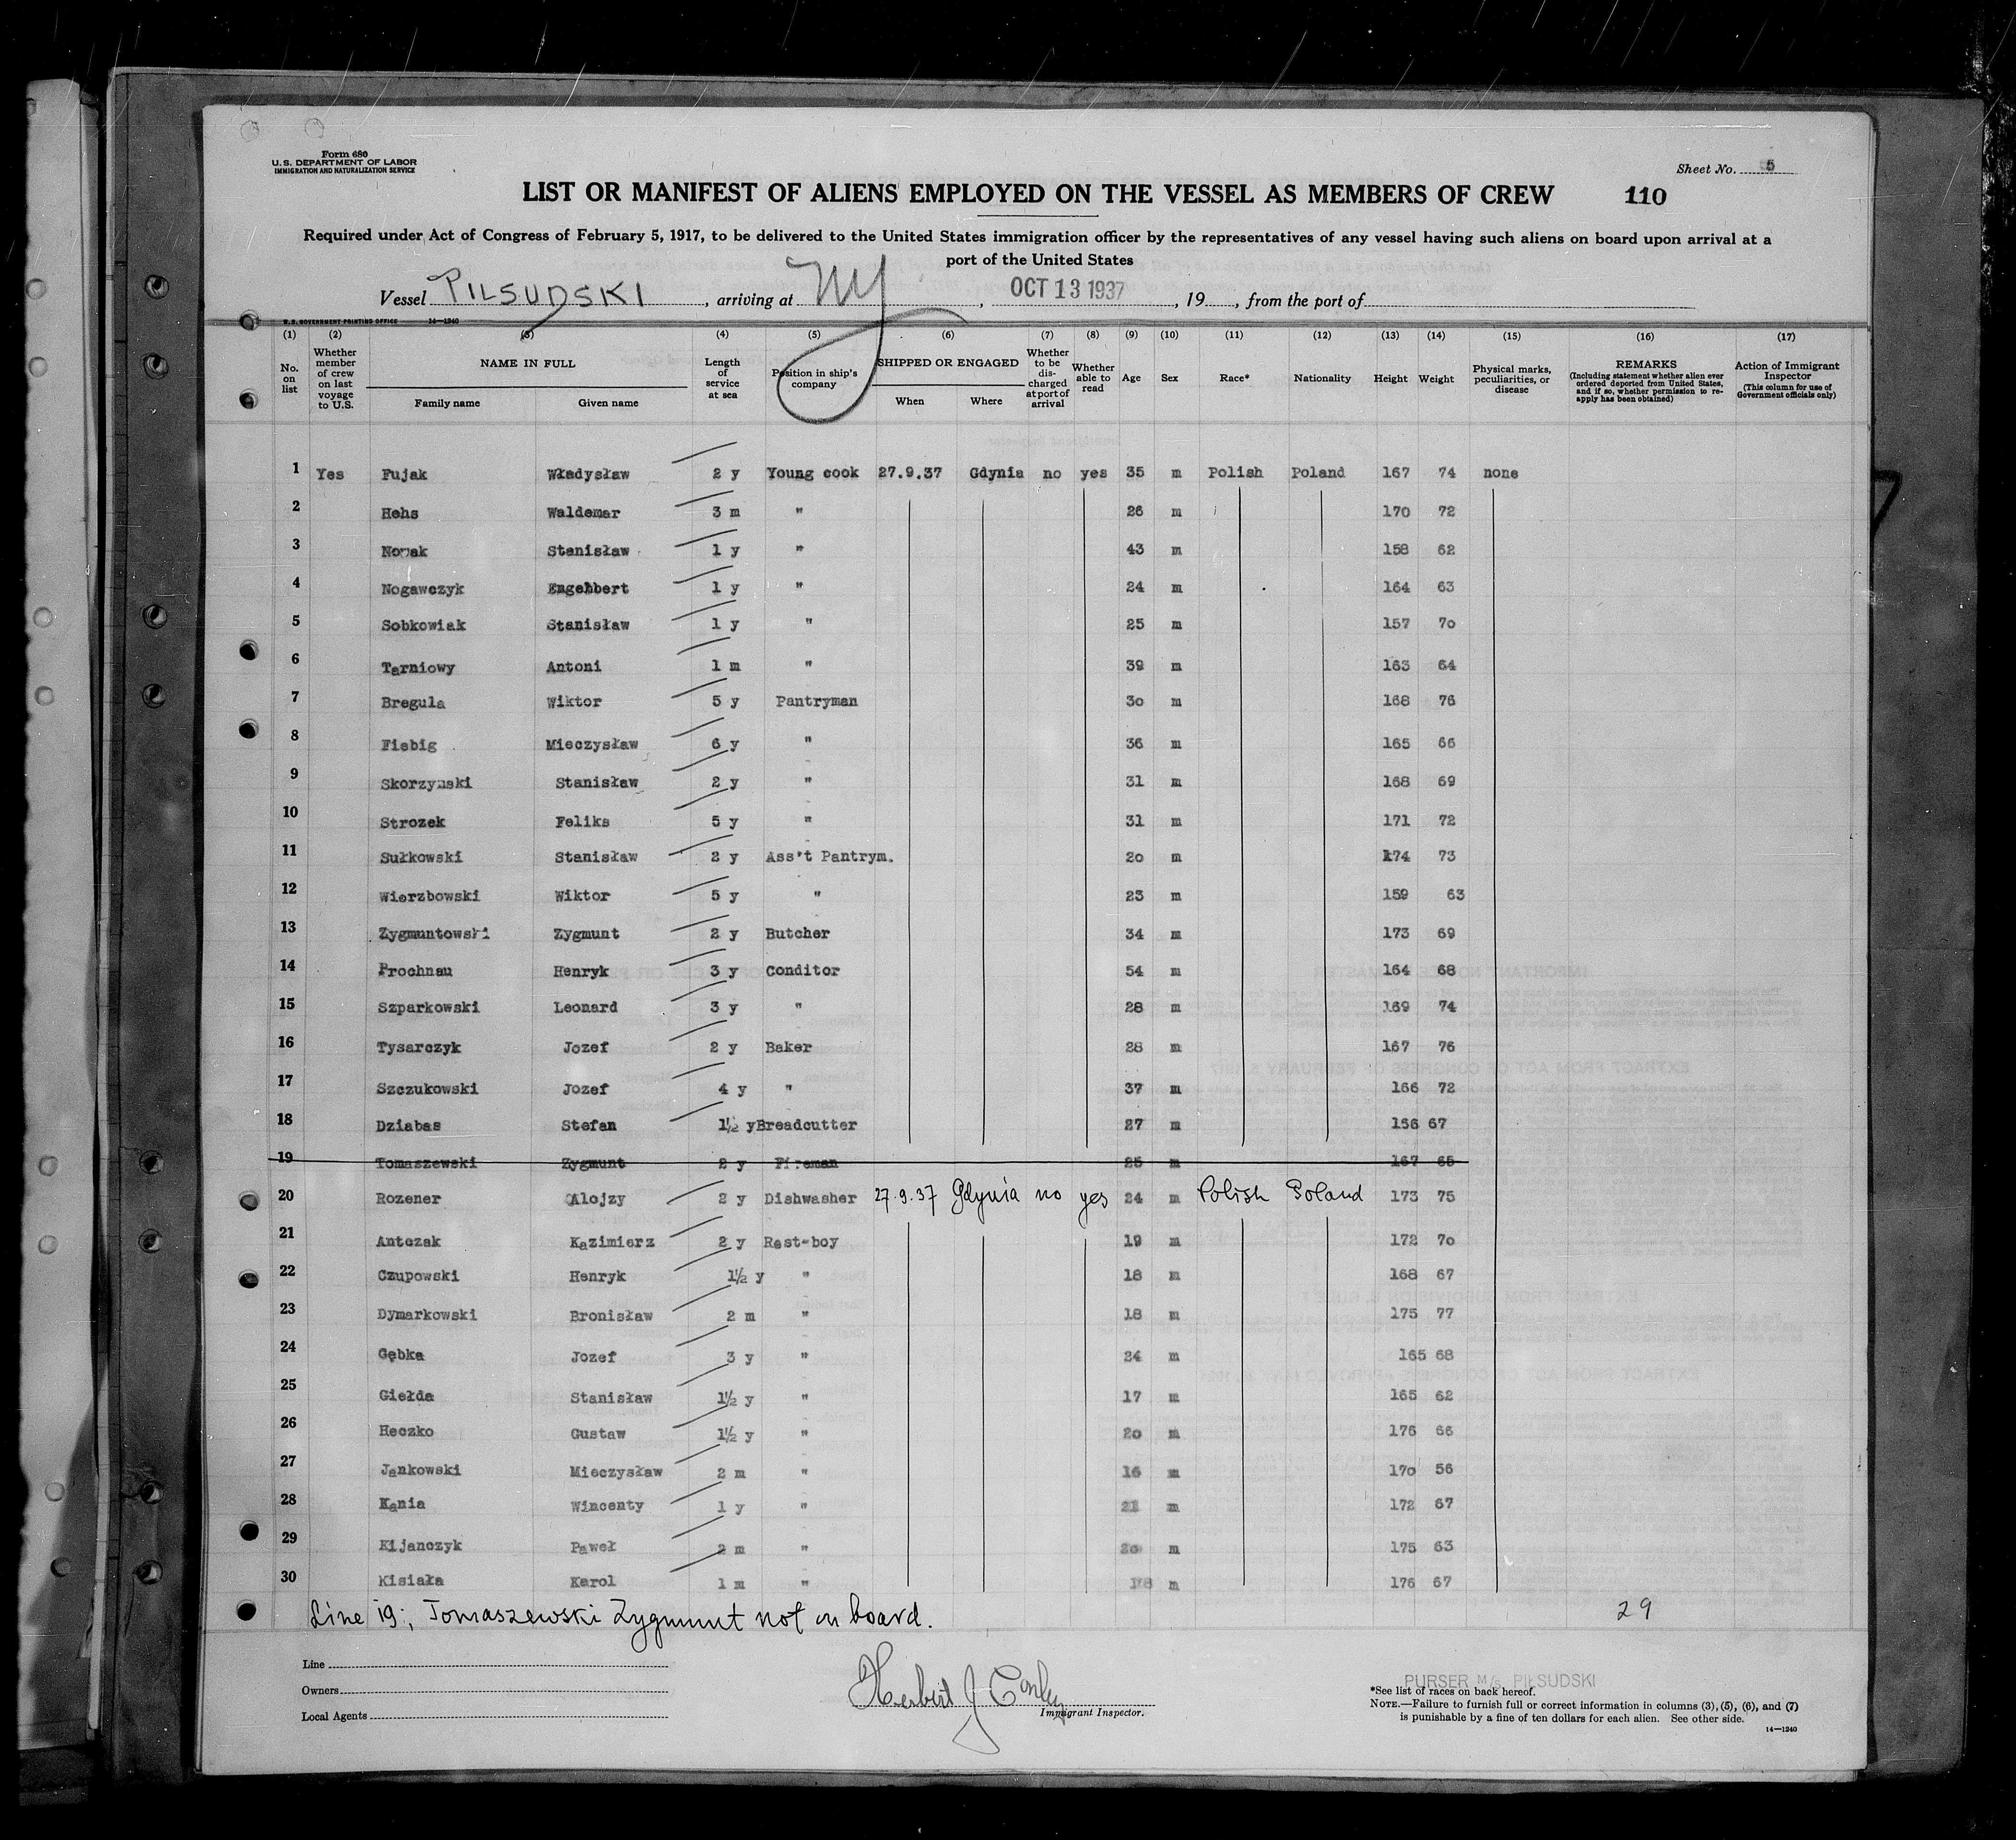 Form 680
U. S. DEPARTMENT OF LABOR
IMMIGRATION AND NATURALIZATION SERVICE
Sheet No. 5
LIST OR MANIFEST OF ALIENS EMPLOYED ON THE VESSEL AS MEMBERS OF CREW 110
Required under Act of Congress of February 5, 1917, to be delivered to the United States immigration officer by the representatives of any vessel having such aliens on board upon arrival at a
port of the United States
Vessel PILSUDSKI, arriving at NY, OCT 13 1937, 19, from the port of
U. S. GOVERNMENT PRINTING OFFICE 14—1240
(1) (2) (3) (4) (5) (6) (7) (8) (9) (10) (11) (12) (13) (14) (15) (16) (17)
No. on list
Whether member of crew on last voyage to U.S.
NAME IN FULL
Family name Given name
Length of service at sea
Position in ship's company
SHIPPED OR ENGAGED
When Where
Whether to be discharged at port of arrival
Whether able to read
Age
Sex
Race*
Nationality
Height
Weight
Physical marks, peculiarities, or disease
REMARKS
(Including statement whether alien ever ordered deported from United States, and if so, whether permission to re-apply has been obtained)
Action of Immigrant Inspector
(This column for use of Government officials only)
1 Yes Fujak Władysław 2 y Young cook 27.9.37 Gdynia no yes 35 m Polish Poland 167 74 none
2 Hehs Waldemar 3 m " 26 m 170 72
3 Nowak Stanisław 1 y " 43 m 158 62
4 Nogawczyk Engelbert 1 y " 24 m 164 63
5 Sobkowiak Stanisław 1 y " 25 m 157 70
6 Tarniowy Antoni 1 m " 39 m 163 64
7 Bregula Wiktor 5 y Pantryman 30 m 168 76
8 Fiebig Mieczysław 6 y " 36 m 165 66
9 Skorzynski Stanisław 2 y " 31 m 168 69
10 Strozek Feliks 5 y " 31 m 171 72
11 Sułkowski Stanisław 2 y Ass't Pantrym. 20 m 174 73
12 Wierzbowski Wiktor 5 y " 23 m 159 63
13 Zygmuntowski Zygmunt 2 y Butcher 34 m 173 69
14 Prochnau Henryk 3 y Conditor 54 m 164 68
15 Szparkowski Leonard 3 y " 28 m 169 74
16 Tysarczyk Jozef 2 y Baker 28 m 167 76
17 Szczukowski Jozef 4 y " 37 m 166 72
18 Dziabas Stefan 1½ y Breadcutter 27 m 156 67
19 Tomaszewski Zygmunt 2 y Fireman 25 m 167 65
20 Rozener Alojzy 2 y Dishwasher 27.9.37 Gdynia no yes 24 m Polish Poland 173 75
21 Antczak Kazimierz 2 y Rest-boy 19 m 172 70
22 Czupowski Henryk 1½ y " 18 m 168 67
23 Dymarkowski Bronisław 2 m " 18 m 175 77
24 Gębka Jozef 3 y " 24 m 165 68
25 Giełda Stanisław 1½ y " 17 m 165 62
26 Heczko Gustaw 1½ y " 20 m 176 66
27 Jankowski Mieczysław 2 m " 16 m 170 56
28 Kania Wincenty 1 y " 21 m 172 67
29 Kijanczyk Paweł 2 m " 20 m 175 63
30 Kisiała Karol 1 m " 18 m 176 67
Line 19; Tomaszewski Zygmunt not on board. 29
Line
Owners
Local Agents
Herbert J Conley
Immigrant Inspector.
PURSER M/S. PIŁSUDSKI
*See list of races on back hereof.
NOTE.—Failure to furnish full or correct information in columns (3), (5), (6), and (7)
is punishable by a fine of ten dollars for each alien. See other side.
14—1240